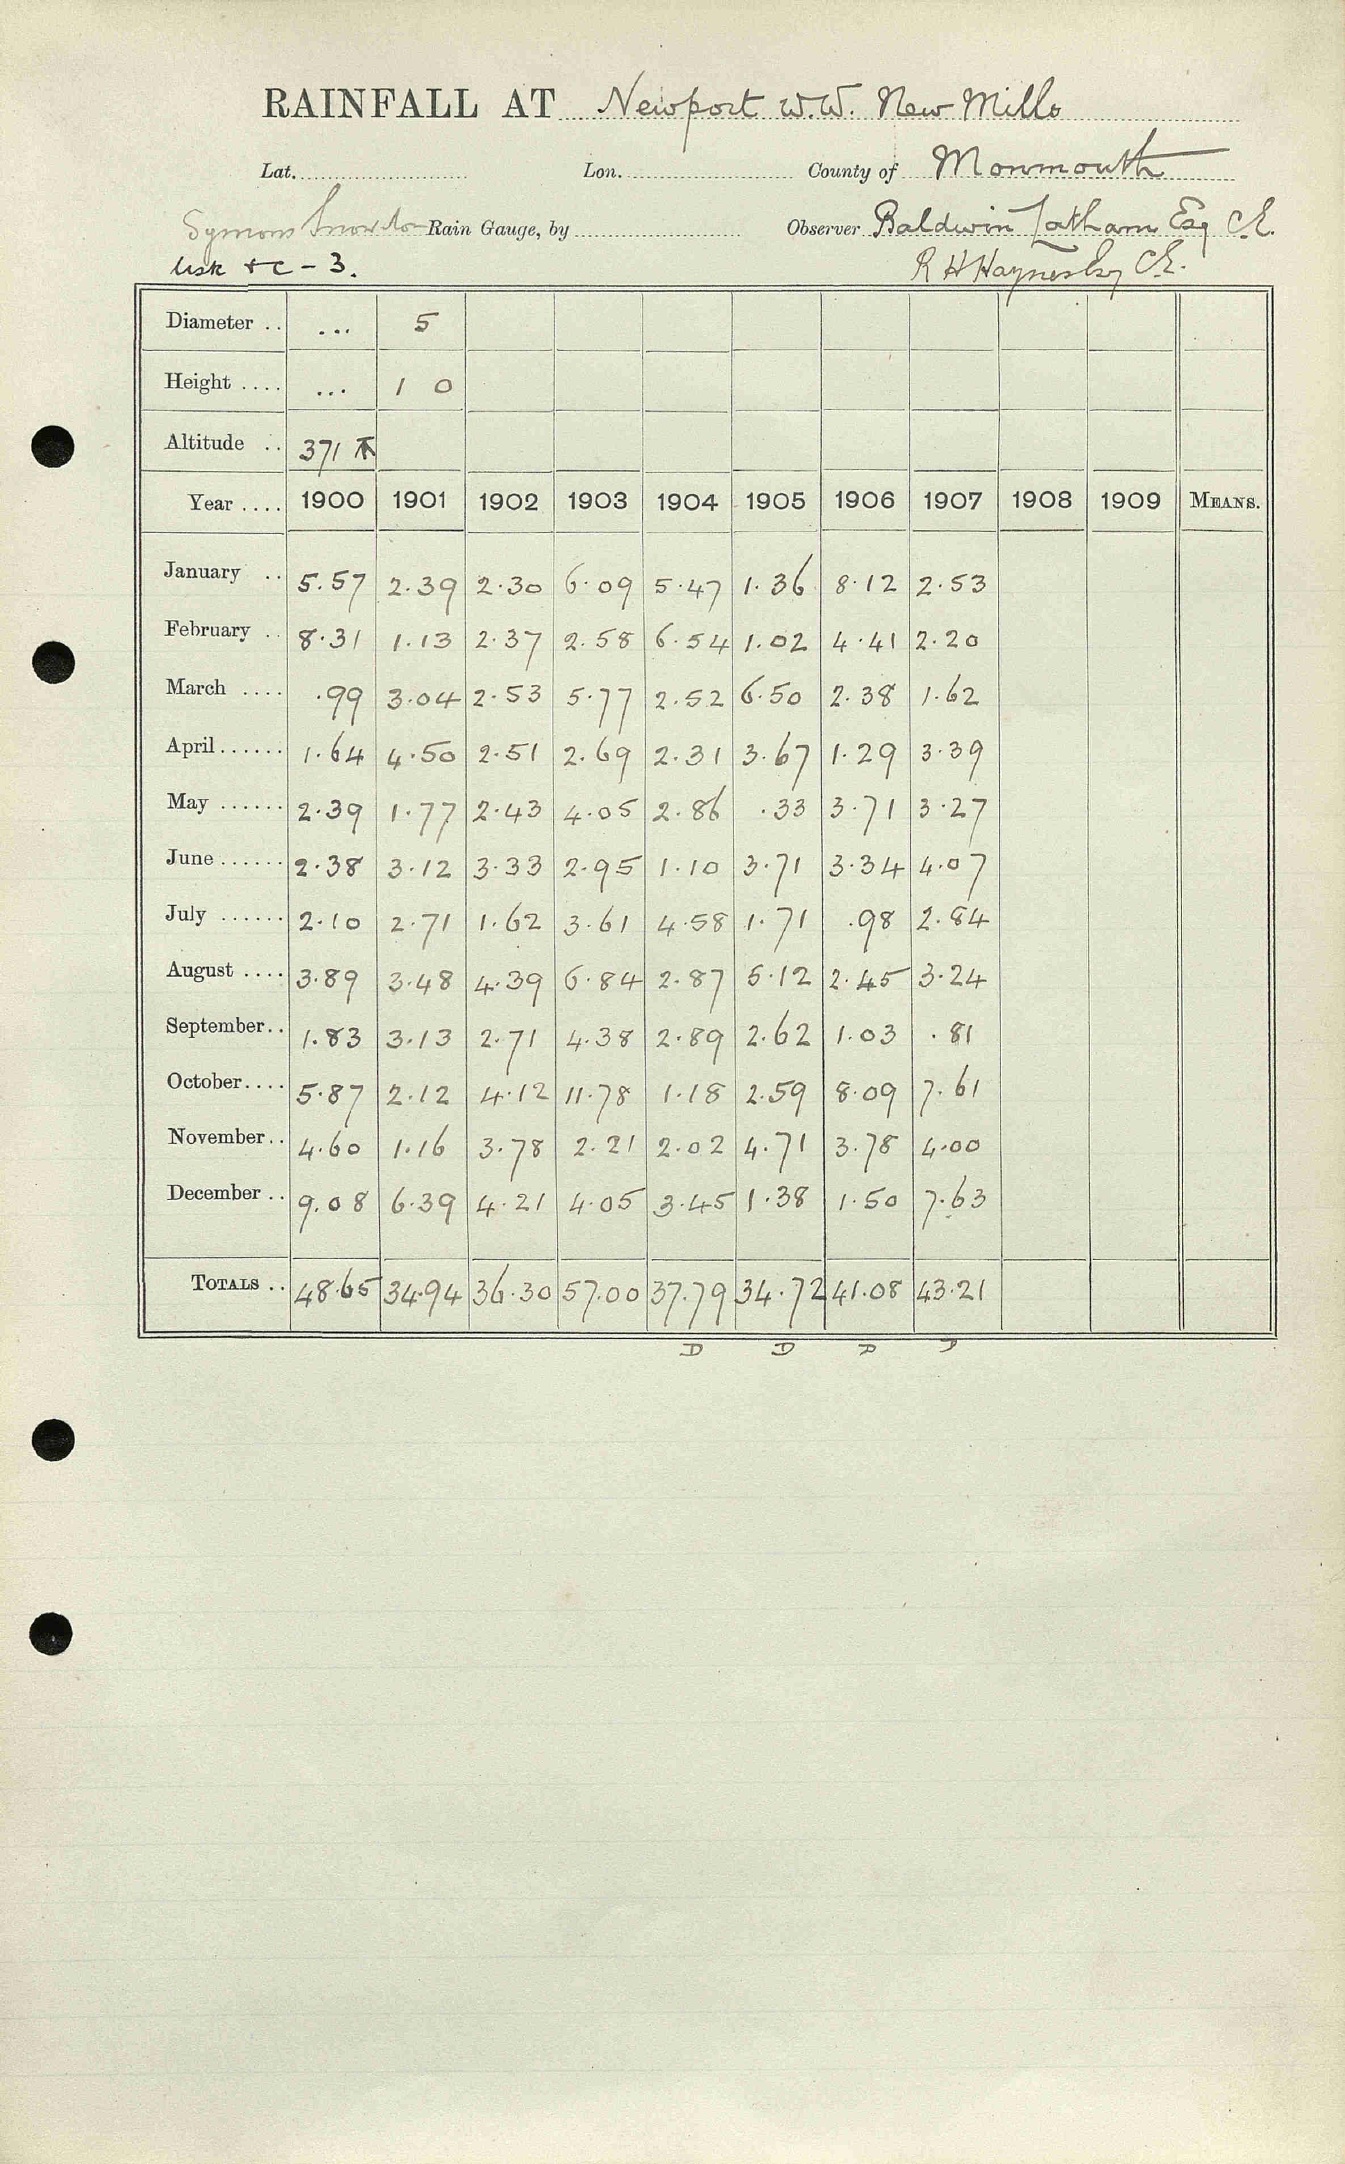 RAINFALL AT Newport W.W. New Mills
Lat. Lon. County of Monmouth
Symons Snowdon Rain Gauge, by Observer Baldwin Latham Esq C.E.
Usk &c - 3. R H Haynes Esq C.E.
Diameter .. ... 5
Height .... ... 1 0
Altitude .. 371
Year .... 1900 1901 1902 1903 1904 1905 1906 1907 1908 1909 MEANS.
January .. 5.57 2.39 2.30 6.09 5.47 1.36 8.12 2.53
February .. 8.31 1.13 2.37 2.58 6.54 1.02 4.41 2.20
March .... .99 3.04 2.53 5.77 2.52 6.50 2.38 1.62
April...... 1.64 4.50 2.51 2.69 2.31 3.67 1.29 3.39
May ...... 2.39 1.77 2.43 4.05 2.86 .33 3.71 3.27
June...... 2.38 3.12 3.33 2.95 1.10 3.71 3.34 4.07
July ...... 2.10 2.71 1.62 3.61 4.58 1.71 .98 2.84
August .... 3.89 3.48 4.39 6.84 2.87 5.12 2.45 3.24
September.. 1.83 3.13 2.71 4.38 2.89 2.62 1.03 .81
October.... 5.87 2.12 4.12 11.78 1.18 2.59 8.09 7.61
November.. 4.60 1.16 3.78 2.21 2.02 4.71 3.78 4.00
December .. 9.08 6.39 4.21 4.05 3.45 1.38 1.50 7.63
TOTALS .. 48.65 34.94 36.30 57.00 37.79 34.72 41.08 43.21
D D D D